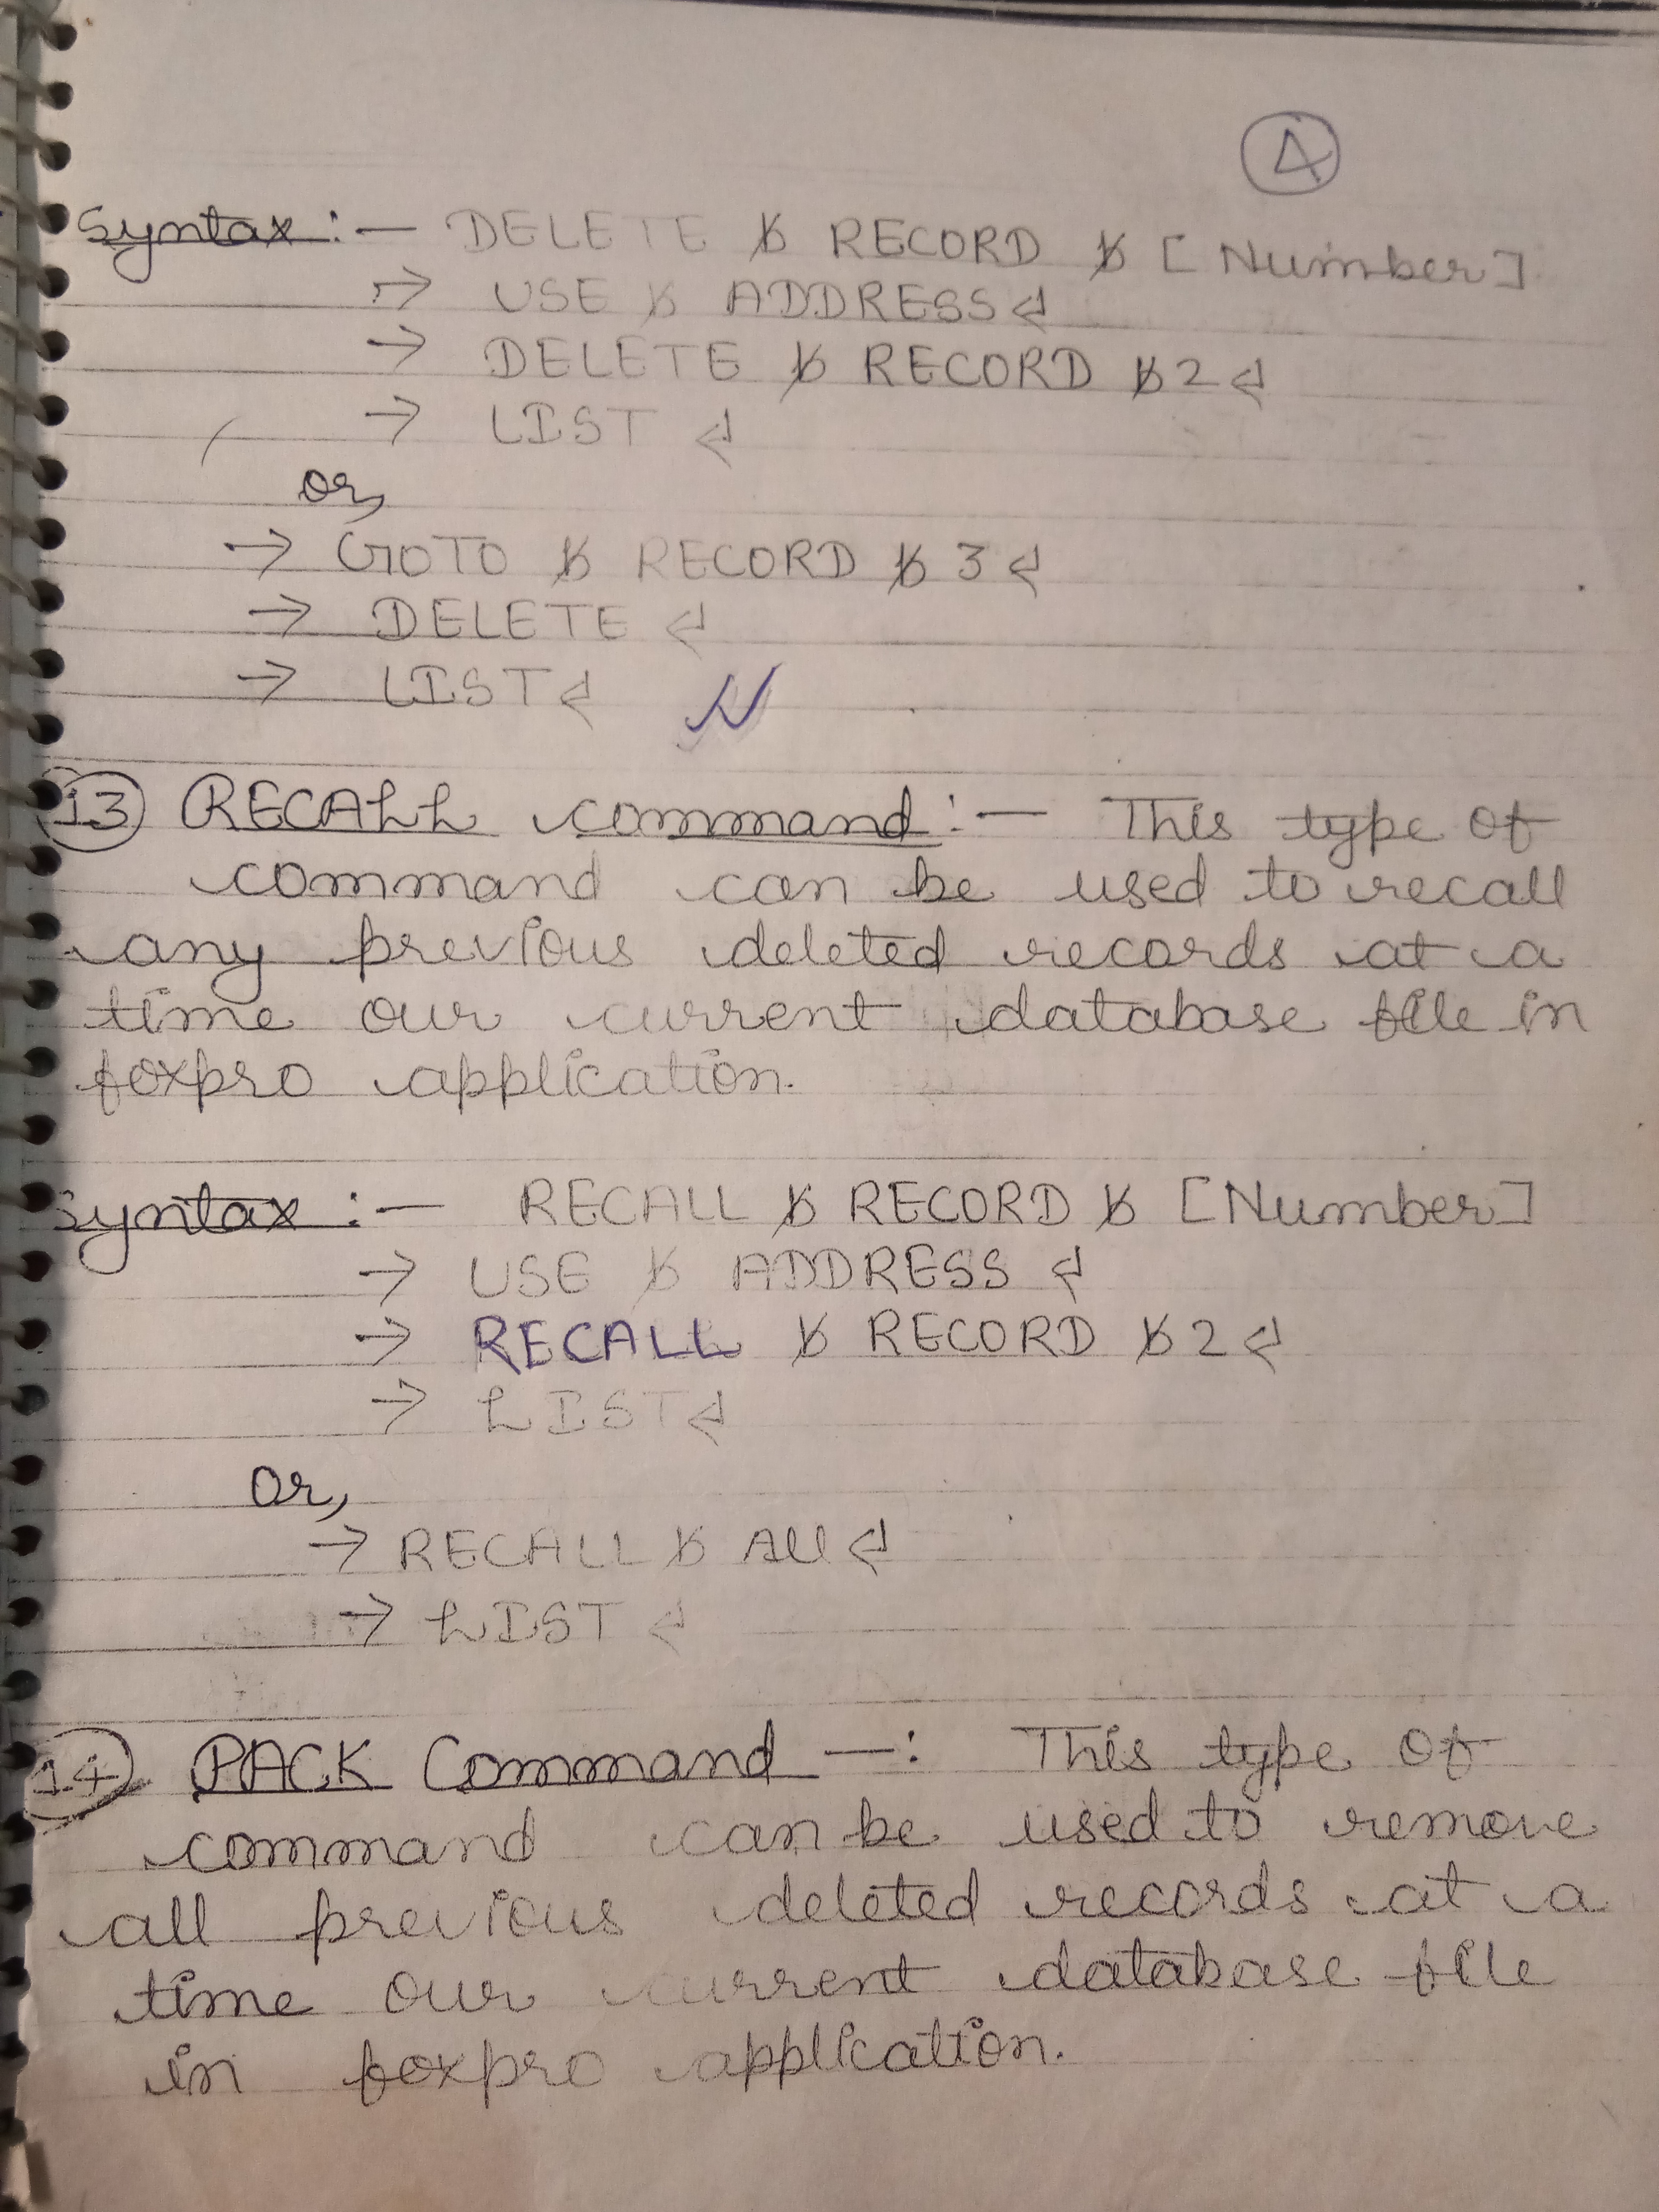 4
Syntax :- DELETE ƀ RECORD ƀ [Number]
→ USE ƀ ADDRESS ↲
→ DELETE ƀ RECORD ƀ 2 ↲
→ LIST ↲
or,
→ GOTO ƀ RECORD ƀ 3 ↲
→ DELETE ↲
→ LIST ↲
13 RECALL command :- This type of
command can be used to recall
any previous deleted records at a
time our current database file in
foxpro application.
Syntax :- RECALL ƀ RECORD ƀ [Number]
→ USE ƀ ADDRESS ↲
→ RECALL ƀ RECORD ƀ 2 ↲
→ LIST ↲
Or,
→ RECALL ƀ All ↲
→ LIST ↲
14 PACK Command -: This type of
command can be used to remove
all previous deleted records at a
time our current database file
in foxpro application.